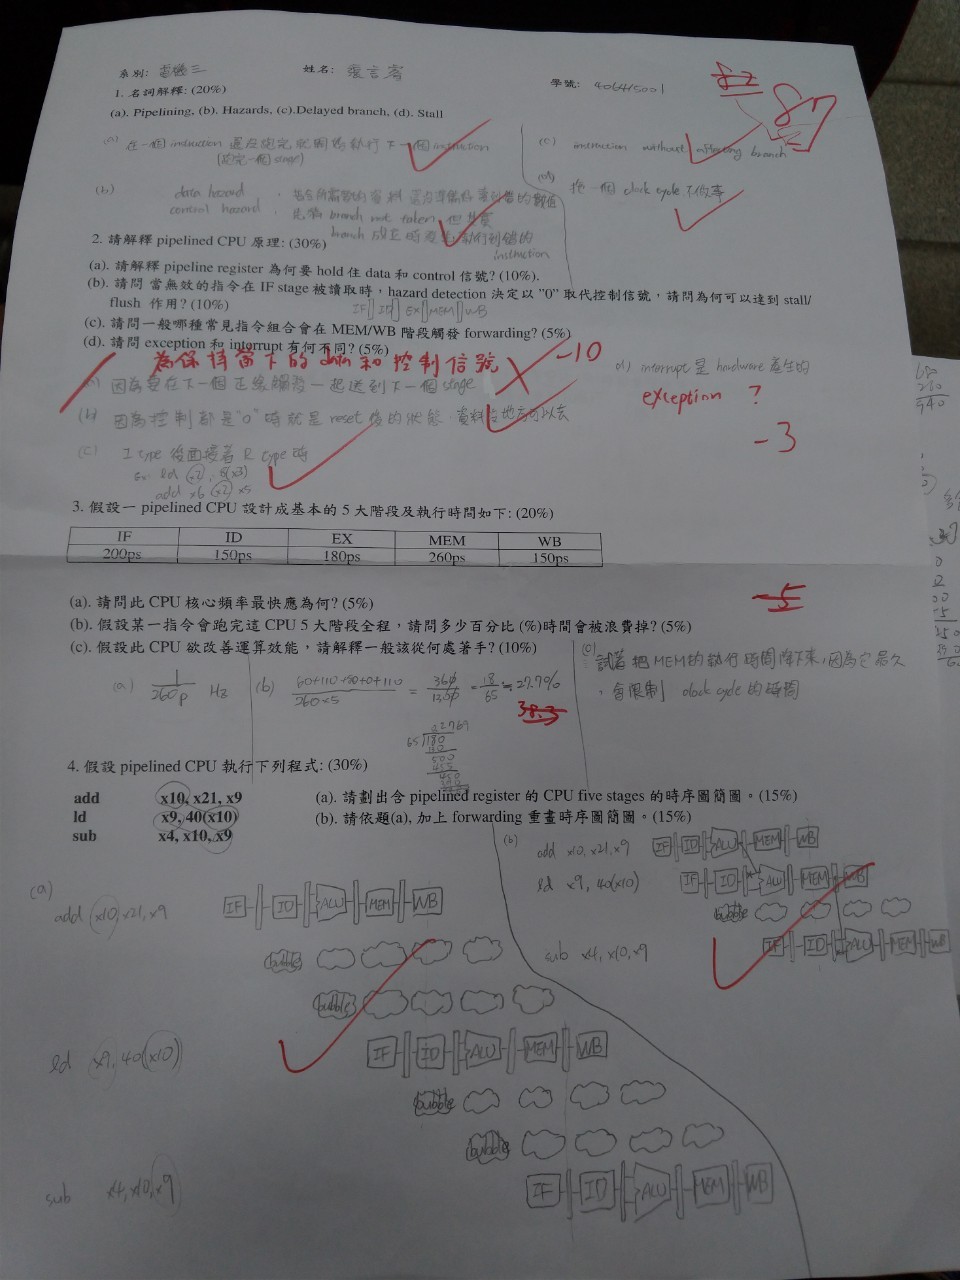 系別: 電機三
姓名:
學號: 406415001
82
87
1. 名詞解釋: (20%)
(a). Pipelining, (b). Hazards, (c).Delayed branch, (d). Stall
在一個 instruction 還沒跑完就開始執行下一個 instruction
(跑完一個 stage)
(c) instruction without affecting branch
(b) data hazard
control hazard
branch not taken
branch 成立時
instruction
(d) 一個 clock cycle 不做事
2. 請解釋 pipelined CPU 原理: (30%)
(a). 請解釋 pipeline register 為何要 hold 住 data 和 control 信號? (10%).
(b). 請問 當無效的指令在 IF stage 被讀取時，hazard detection 決定以 "0" 取代控制信號，請問為何可以達到 stall/
flush 作用? (10%)
IF ID EX MEM WB
(c). 請問一般哪種常見指令組合會在 MEM/WB 階段觸發 forwarding? (5%)
(d). 請問 exception 和 interrupt 有何不同? (5%)
為保持當下的 data 和控制信號
-10
因為要在下一個正緣觸發一起送到下一個 stage
(b) 因為控制都是"0"時就是 reset 後的狀態
(c) I type 後面接著 R type 時
ex: ld x2, 8(x3)
add x6 x2 x5
d) interrupt 是 hardware 產生的
exception ?
-3
3. 假設一 pipelined CPU 設計成基本的 5 大階段及執行時間如下: (20%)
IF ID EX MEM WB
200ps 150ps 180ps 260ps 150ps
-5
(a). 請問此 CPU 核心頻率最快應為何? (5%)
(b). 假設某一指令會跑完這 CPU 5 大階段全程，請問多少百分比 (%)時間會被浪費掉? (5%)
(c). 假設此 CPU 欲改善運算效能，請解釋一般該從何處著手? (10%)
(a) 1/260p Hz
(b) 60+110+80+0+110 / 260×5 = 360/1300 = 18/65 ≒ 27.7%
38.3
(c) 試著把 MEM 的執行時間降下來，因為它最久
，會限制 clock cycle 的時間
4. 假設 pipelined CPU 執行下列程式: (30%)
add x10, x21, x9
ld x9, 40(x10)
sub x4, x10, x9
(a). 請劃出含 pipelined register 的 CPU five stages 的時序圖簡圖。(15%)
(b). 請依題(a), 加上 forwarding 重畫時序圖簡圖。(15%)
(b)
add x10, x21, x9 IF ID ALU MEM WB
ld x9, 40(x10) IF ID ALU MEM WB
bubble
sub x4, x10, x9 IF ID ALU MEM WB
(a)
add x10, x21, x9 IF ID ALU MEM WB
bubble
bubble
ld x9, 40(x10) IF ID ALU MEM WB
bubble
bubble
sub x4, x10, x9 IF ID ALU MEM WB